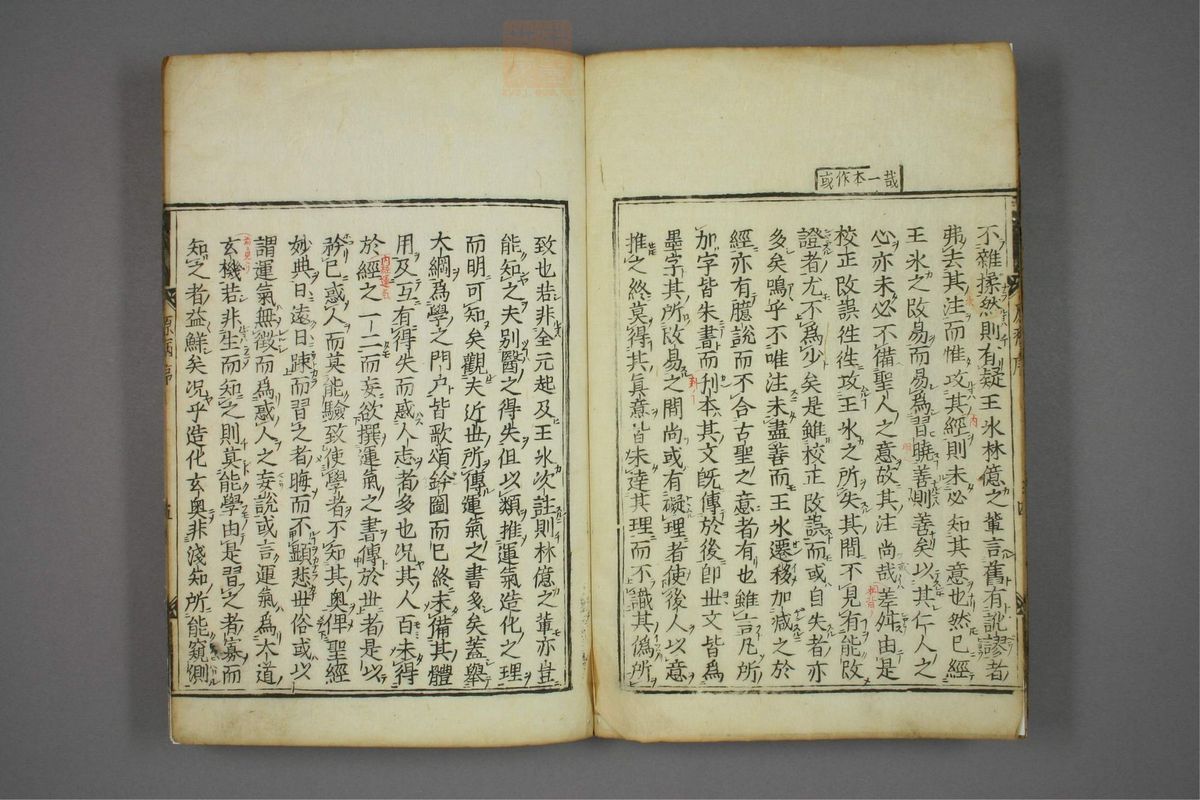 哉一本作或
不雜揉然則有疑王氷林億之輩言舊有訛謬者
弗去其注而惟攻其經則未必知其意也然已經
王氷之改易而易為習曉善則善矣以其仁人之
心亦未必不備聖人之意故其注尚哉差舛由是
校正改誤徃徃攻王氷之所失其間不見有能改
證者尤不為少矣是雖校正改誤而或自失者亦
多矣嗚乎不唯注未盡善而王氷遷移加减之於
經亦有臆說而不合古聖之意者有也雖言凡所
加字皆朱書而刊本其文旣傳於後卽世文皆為
墨字其所改易之間尚或有礙理者使後人以意
推之終莫得其眞意皆未達其理而不識其僞所
致也若非全元起及王氷次註則林億之輩亦豈
能知之夫別醫之得失但以類推運氣造化之理
而明可知矣觀夫近世所傳運氣之書多矣蓋舉
大綱為學之門户皆歌頌鈐圖而已終未備其體
用及互有得失而惑人志者多也况其人百未得
於經之一二而妄欲撰運氣之書傳於世者是以
矜已惑人而莫能驗致使學者不知其奧俾聖經
妙典日遠日踈而習之者晦而不顯悲世俗或以
謂運氣無徵而為惑人之妄說或言運氣為大道
玄機若非生而知之則莫能學由是習之者寡而
知之者益鮮矣况乎造化玄奥非淺知所能窺測
原病序